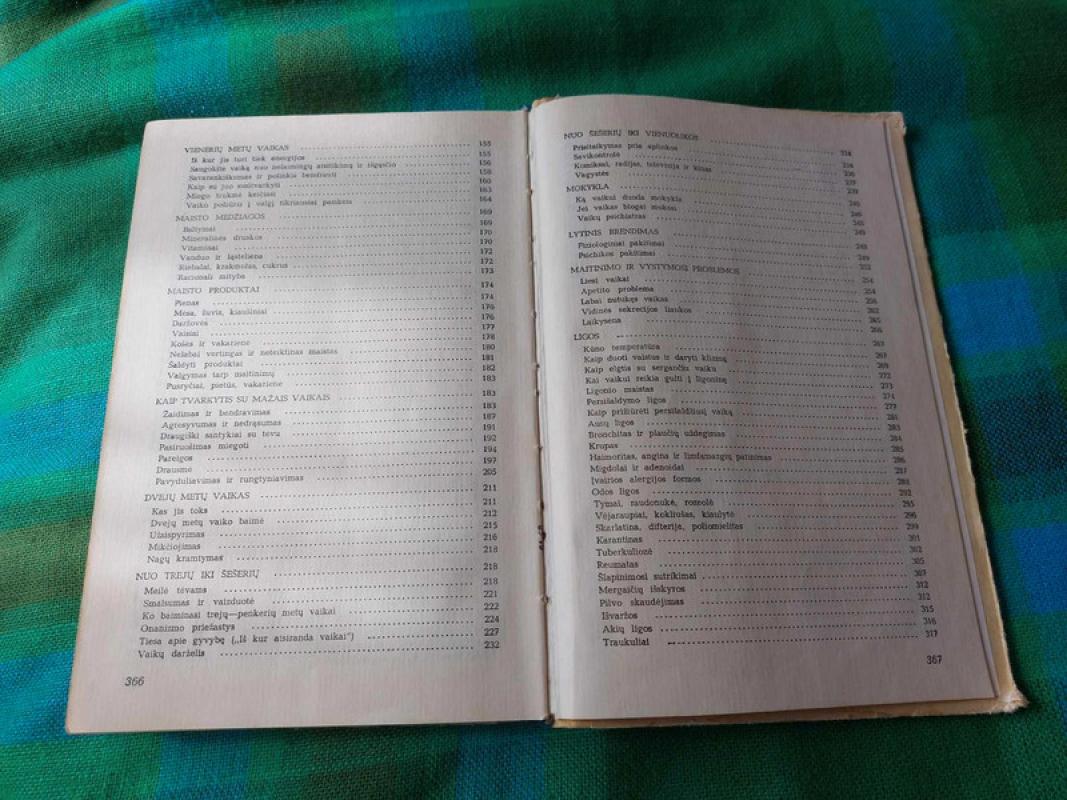 VIENERIŲ METŲ VAIKAS 155
Iš kur jis turi tiek energijos 155
Saugokite vaiką nuo nelaimingų atsitikimų ir išgąsčio 156
Savarankiškumas ir polinkis bendrauti 158
Kaip su juo susitvarkyti 160
Miego trukmė keičiasi 163
Vaiko požiūris į valgį tikriausiai pasikeis 164
MAISTO MEDŽIAGOS 169
Baltymai 169
Mineralinės druskos 170
Vitaminai 170
Vanduo ir ląsteliena 172
Riebalai, krakmolas, cukrus 172
Racionali mityba 173
MAISTO PRODUKTAI 174
Pienas 174
Mėsa, žuvis, kiaušiniai 176
Daržovės 176
Vaisiai 177
Košės ir vakarienė 178
Nelabai vertingas ir neteiktinas maistas 180
Šaldyti produktai 181
Valgymas tarp maitinimų 182
Pusryčiai, pietūs, vakarienė 183
KAIP TVARKYTIS SU MAŽAIS VAIKAIS 183
Žaidimas ir bendravimas 183
Agresyvumas ir nedrąsumas 187
Draugiški santykiai su tėvu 191
Pasiruošimas miegoti 192
Pareigos 194
Drausmė 197
Pavyduliavimas ir rungtyniavimas 205
DVEJŲ METŲ VAIKAS 211
Kas jis toks 211
Dvejų metų vaiko baimė 212
Užsispyrimas 215
Mikčiojimas 216
Nagų kramtymas 218
NUO TREJŲ IKI ŠEŠERIŲ 218
Meilė tėvams 218
Smalsumas ir vaizduotė 221
Ko baiminasi trejų—penkerių metų vaikai 222
Onanizmo priežastys 224
Tiesa apie gyvybę („Iš kur atsiranda vaikai") 227
Vaikų darželis 232
366
NUO ŠEŠERIŲ IKI VIENUOLIKOS
Prisitaikymas prie aplinkos 234
Savikontrolė
Komiksai, radijas, televizija ir kinas
Vagystės 239
MOKYKLA 239
Ką vaikui duoda mokykla
Jei vaikas blogai mokosi
Vaikų psichiatras
LYTINIS BRENDIMAS 249
Fiziologiniai pakitimai
Psichikos pakitimai 249
MAITINIMO IR VYSTYMOSI PROBLEMOS 252
Liesi vaikai 254
Apetito problema 254
Labai nutukęs vaikas
Vidinės sekrecijos liaukos 262
Laikysena 265
LIGOS
Kūno temperatūra
Kaip duoti vaistus ir daryti klizmą
Kaip elgtis su sergančiu vaiku 269
Kai vaikui reikia gulti į ligoninę 272
Ligonio maistas 273
Peršalimo ligos 274
Kaip prižiūrėti peršaldžiusį vaiką 277
Ausų ligos 281
Bronchitas ir plaučių uždegimas 283
Krupas 284
Haimoritas, angina ir limfamazgių patinimas 285
Migdolai ir adenoidai 286
Įvairios alergijos formos 287
Odos ligos 288
Tymai, raudonukė, rozeolė 292
Vėjaraupiai, kokliušas, kiaulytė 295
Skarlatina, difterija, poliomielitas 296
Karantinas 299
Tuberkuliozė 301
Reumatas 302
Šlapinimosi sutrikimai 305
Mergaičių išskyros 307
Pilvo skaudėjimas 312
Išvaržos 312
Akių ligos 315
Traukuliai 316
317
367